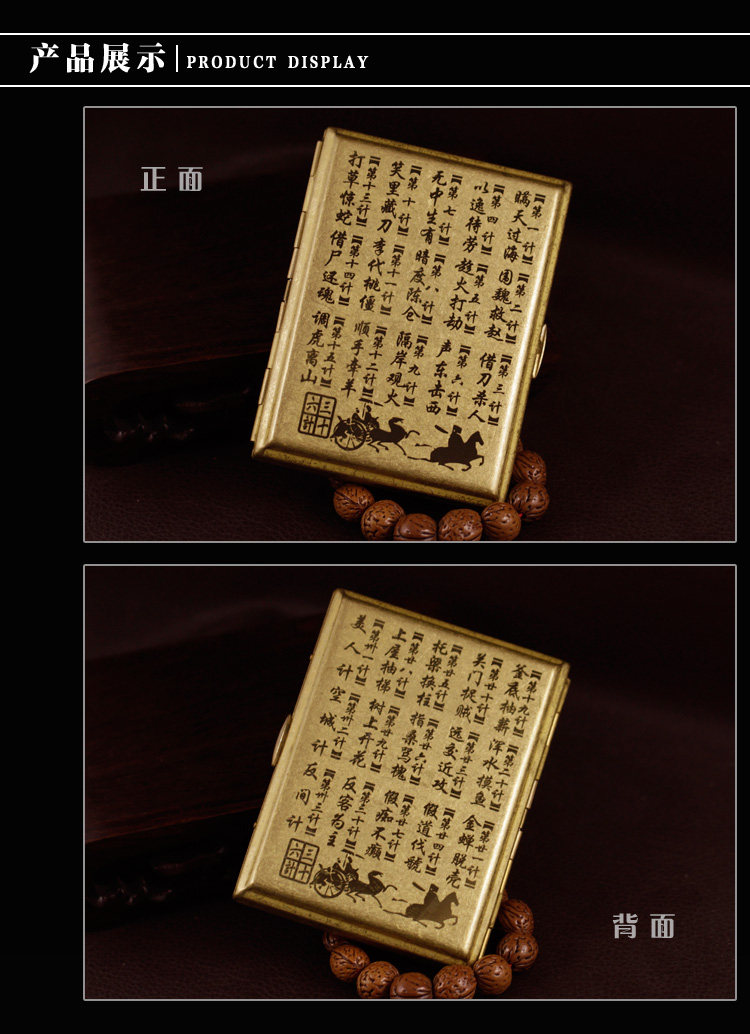 产品展示
PRODUCT DISPLAY
正面
【第一计】
瞒天过海
【第二计】
围魏救赵
【第三计】
借刀杀人
【第四计】
以逸待劳
【第五计】
趁火打劫
【第六计】
声东击西
【第七计】
无中生有
【第八计】
暗度陈仓
【第九计】
隔岸观火
【第十计】
笑里藏刀
【第十一计】
李代桃僵
【第十二计】
顺手牵羊
【第十三计】
打草惊蛇
【第十四计】
借尸还魂
【第十五计】
调虎离山
三十六計
【第十九计】
釜底抽薪
【第二十计】
浑水摸鱼
【第廿一计】
金蝉脱壳
【第廿十计】
关门捉贼
【第廿三计】
远交近攻
【第廿四计】
假道伐虢
【第廿五计】
托梁换柱
【第廿六计】
指桑骂槐
【第廿七计】
假痴不癫
【第廿八计】
上屋抽梯
【第廿九计】
树上开花
【第三十计】
反客为主
【第卅一计】
美人计
【第卅二计】
空城计
【第卅三计】
反间计
三十六計
背面